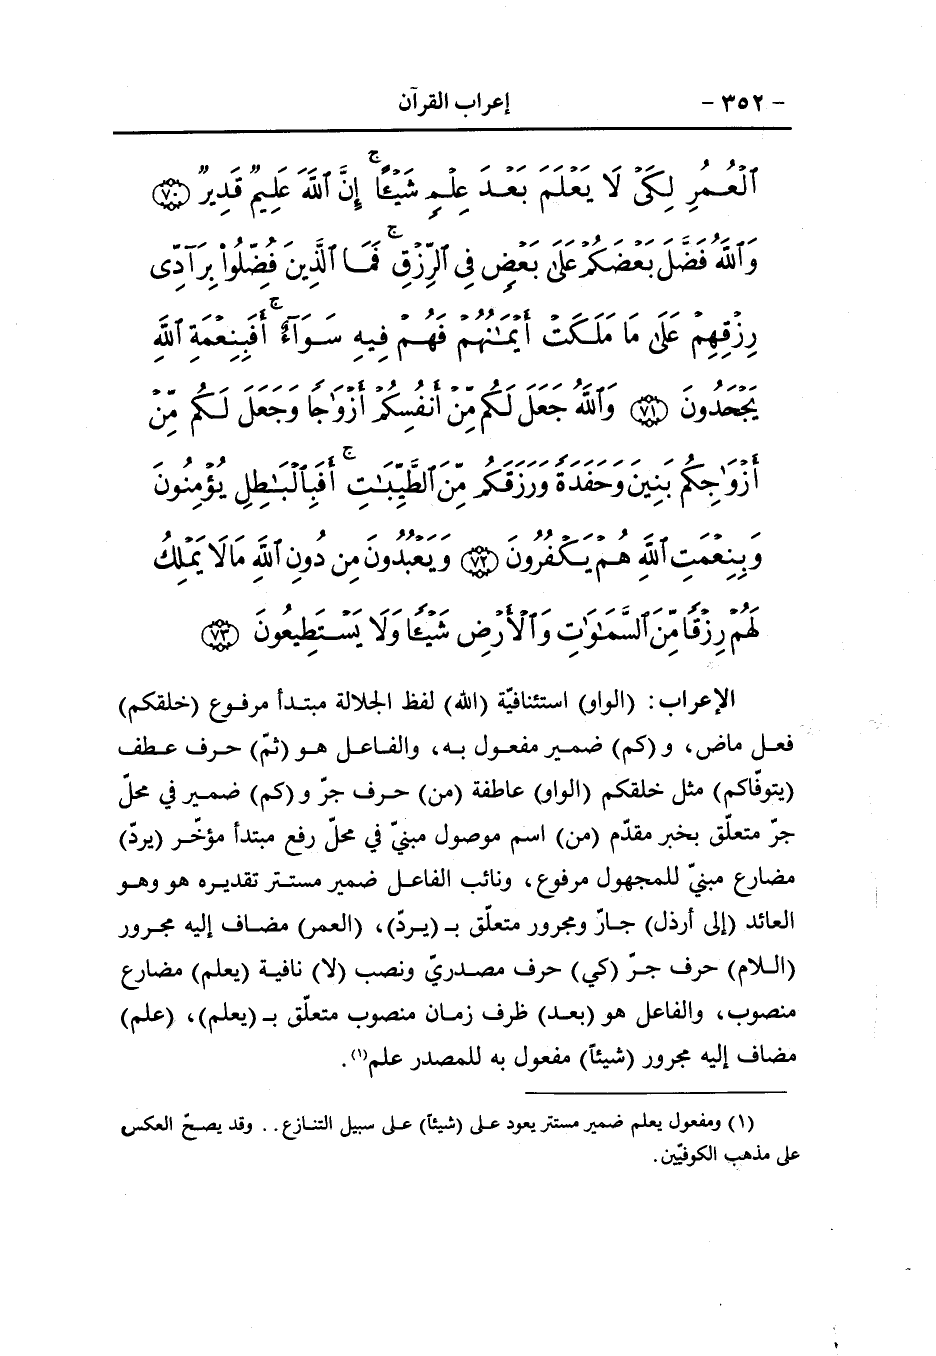 - ٣٥٢ - إعراب القرآن
ٱلْعُمُرِ لِكَىْ لَا يَعْلَمَ بَعْدَ عِلْمٍ شَيْـًٔا ۚ إِنَّ ٱللَّهَ عَلِيمٌ قَدِيرٌ ﴿٧٠﴾
وَٱللَّهُ فَضَّلَ بَعْضَكُمْ عَلَىٰ بَعْضٍ فِى ٱلرِّزْقِ ۚ فَمَا ٱلَّذِينَ فُضِّلُوا۟ بِرَآدِّى
رِزْقِهِمْ عَلَىٰ مَا مَلَكَتْ أَيْمَـٰنُهُمْ فَهُمْ فِيهِ سَوَآءٌ ۚ أَفَبِنِعْمَةِ ٱللَّهِ
يَجْحَدُونَ ﴿٧١﴾ وَٱللَّهُ جَعَلَ لَكُم مِّنْ أَنفُسِكُمْ أَزْوَٰجًا وَجَعَلَ لَكُم مِّنْ
أَزْوَٰجِكُم بَنِينَ وَحَفَدَةً وَرَزَقَكُم مِّنَ ٱلطَّيِّبَـٰتِ ۚ أَفَبِٱلْبَـٰطِلِ يُؤْمِنُونَ
وَبِنِعْمَتِ ٱللَّهِ هُمْ يَكْفُرُونَ ﴿٧٢﴾ وَيَعْبُدُونَ مِن دُونِ ٱللَّهِ مَا لَا يَمْلِكُ
لَهُمْ رِزْقًا مِّنَ ٱلسَّمَـٰوَٰتِ وَٱلْأَرْضِ شَيْـًٔا وَلَا يَسْتَطِيعُونَ ﴿٧٣﴾
الإعراب: (الواو) استئنافيّة (الله) لفظ الجلالة مبتدأ مرفوع (خلقكم)
فعل ماض، و(كم) ضمير مفعول به، والفاعل هو (ثمّ) حرف عطف
(يتوفّاكم) مثل خلقكم (الواو) عاطفة (من) حرف جرّ و(كم) ضمير في محلّ
جرّ متعلّق بخبر مقدّم (من) اسم موصول مبنيّ في محلّ رفع مبتدأ مؤخّر (يردّ)
مضارع مبنيّ للمجهول مرفوع، ونائب الفاعل ضمير مستتر تقديره هو وهو
العائد (إلى أرذل) جارّ ومجرور متعلّق بـ (يردّ)، (العمر) مضاف إليه مجرور
(اللام) حرف جرّ (كي) حرف مصدريّ ونصب (لا) نافية (يعلم) مضارع
منصوب، والفاعل هو (بعد) ظرف زمان منصوب متعلّق بـ (يعلم)، (علم)
مضاف إليه مجرور (شيئاً) مفعول به للمصدر علم(١).
(١) ومفعول يعلم ضمير مستتر يعود على (شيئاً) على سبيل التنازع.. وقد يصحّ العكس
على مذهب الكوفيّين.